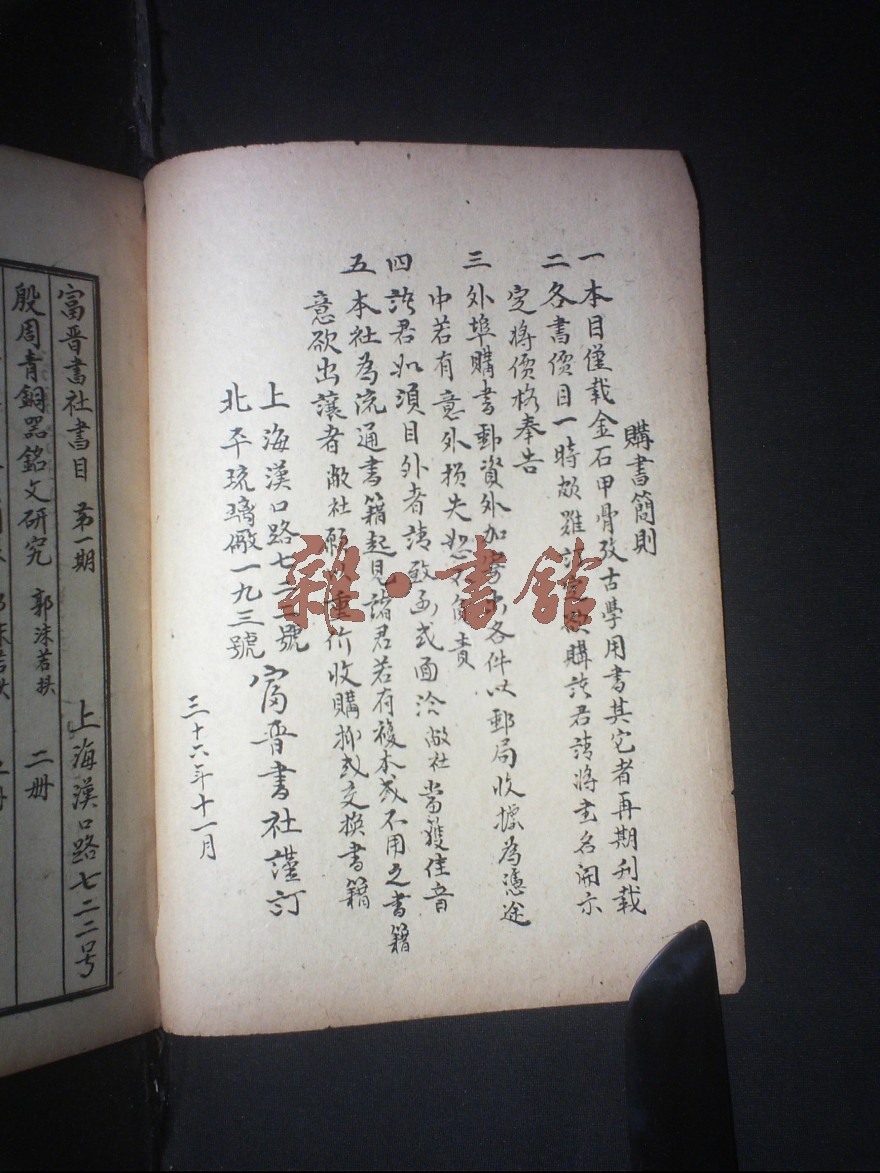 購書簡則
一 本目僅載金石甲骨攷古學用書其它者再期刋載
二 各書價目一時頗難 購諸君請將書名開示
定將價格奉告
三 外埠購書郵資外加 各件以郵局收據為憑途
中若有意外損失恕不負責
四 諸君如須目外者請致函或面洽敝社當獲佳音
五 本社為流通書籍起見諸君若有複本或不用之書籍
意欲出讓者敝社願以重價收購抑或交換書籍
上海漢口路七二二號
北平琉璃廠一九三號
富晉書社謹訂
三十六年十一月
雜·書館
富晉書社書目 第一期 上海漢口路七二二号
殷周青銅器銘文研究 郭沫若撰 二册